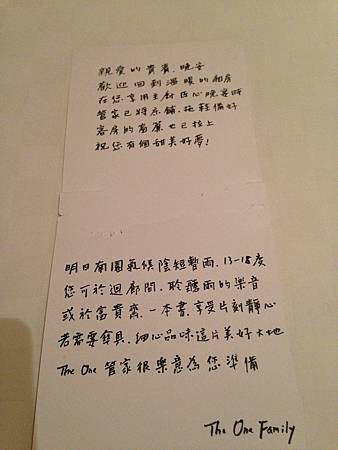 親愛的貴賓，晚安
歡迎回到溫暖的廂房
在您享用主廚匠心晚宴時
管家已將床鋪、拖鞋備好
客房的窗簾也已拉上
祝您有個甜美好夢！
明日南園氣候陰短暫雨，13-18度
您可於迴廊間，聆聽雨的樂音
或於富貴齋，一本書，享受片刻靜心
若需要傘具，細心品味這片美好大地
The One 管家很樂意為您準備
The One Family